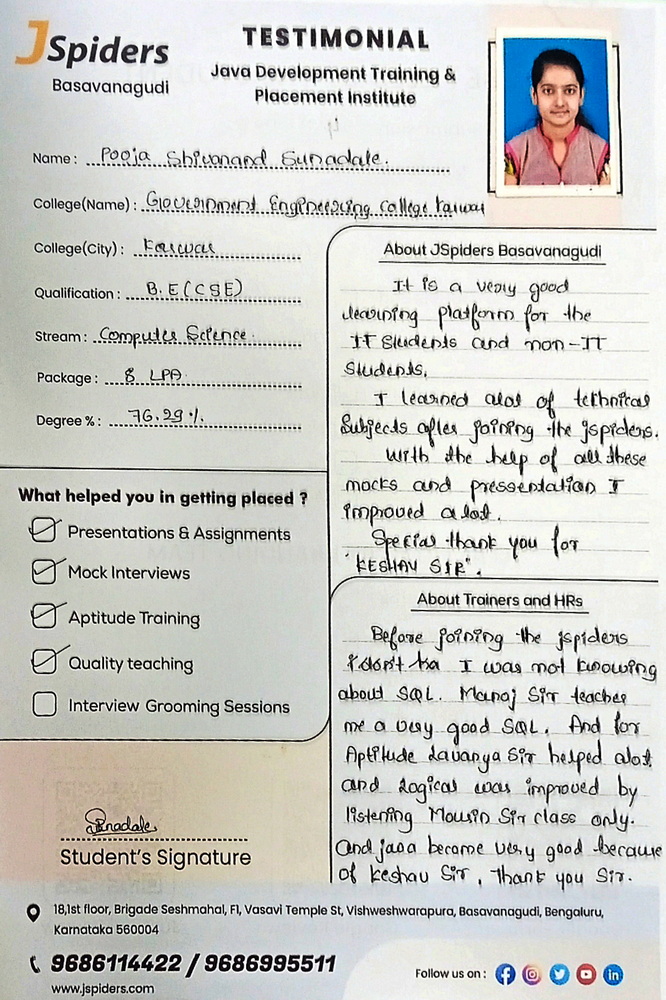 JSpiders
Basavanagudi
TESTIMONIAL
Java Development Training &
Placement Institute
Name : Pooja Shivanand Sunadale.
College(Name) : Government Engineering College Karwar
College(City) : Karwar
Qualification : B.E(CSE)
Stream : Computer Science.
Package : 8 LPA
Degree % : 76.29 %
What helped you in getting placed ?
Presentations & Assignments
Mock Interviews
Aptitude Training
Quality teaching
Interview Grooming Sessions
Sunadale
Student's Signature
About JSpiders Basavanagudi
It is a very good
learning platform for the
IT students and non-IT
students.
I learned alot of technical
Subjects after joining the jspiders.
With the help of all these
mocks and pressentation I
improved alot.
Special thank you for
"KESHAV SIR".
About Trainers and HRs
Before joining the jspiders
I don't ha I was not knowing
about SQL. Manoj Sir teaches
me a very good SQL. And for
Aptitude Lavanya Sir helped alot
and Logical was improved by
listening Mousin Sir class only.
And java become very good because
of Keshav Sir, Thank you Sir.
18,1st floor, Brigade Seshmahal, F1, Vasavi Temple St, Vishweshwarapura, Basavanagudi, Bengaluru,
Karnataka 560004
9686114422 / 9686995511
www.jspiders.com
Follow us on :